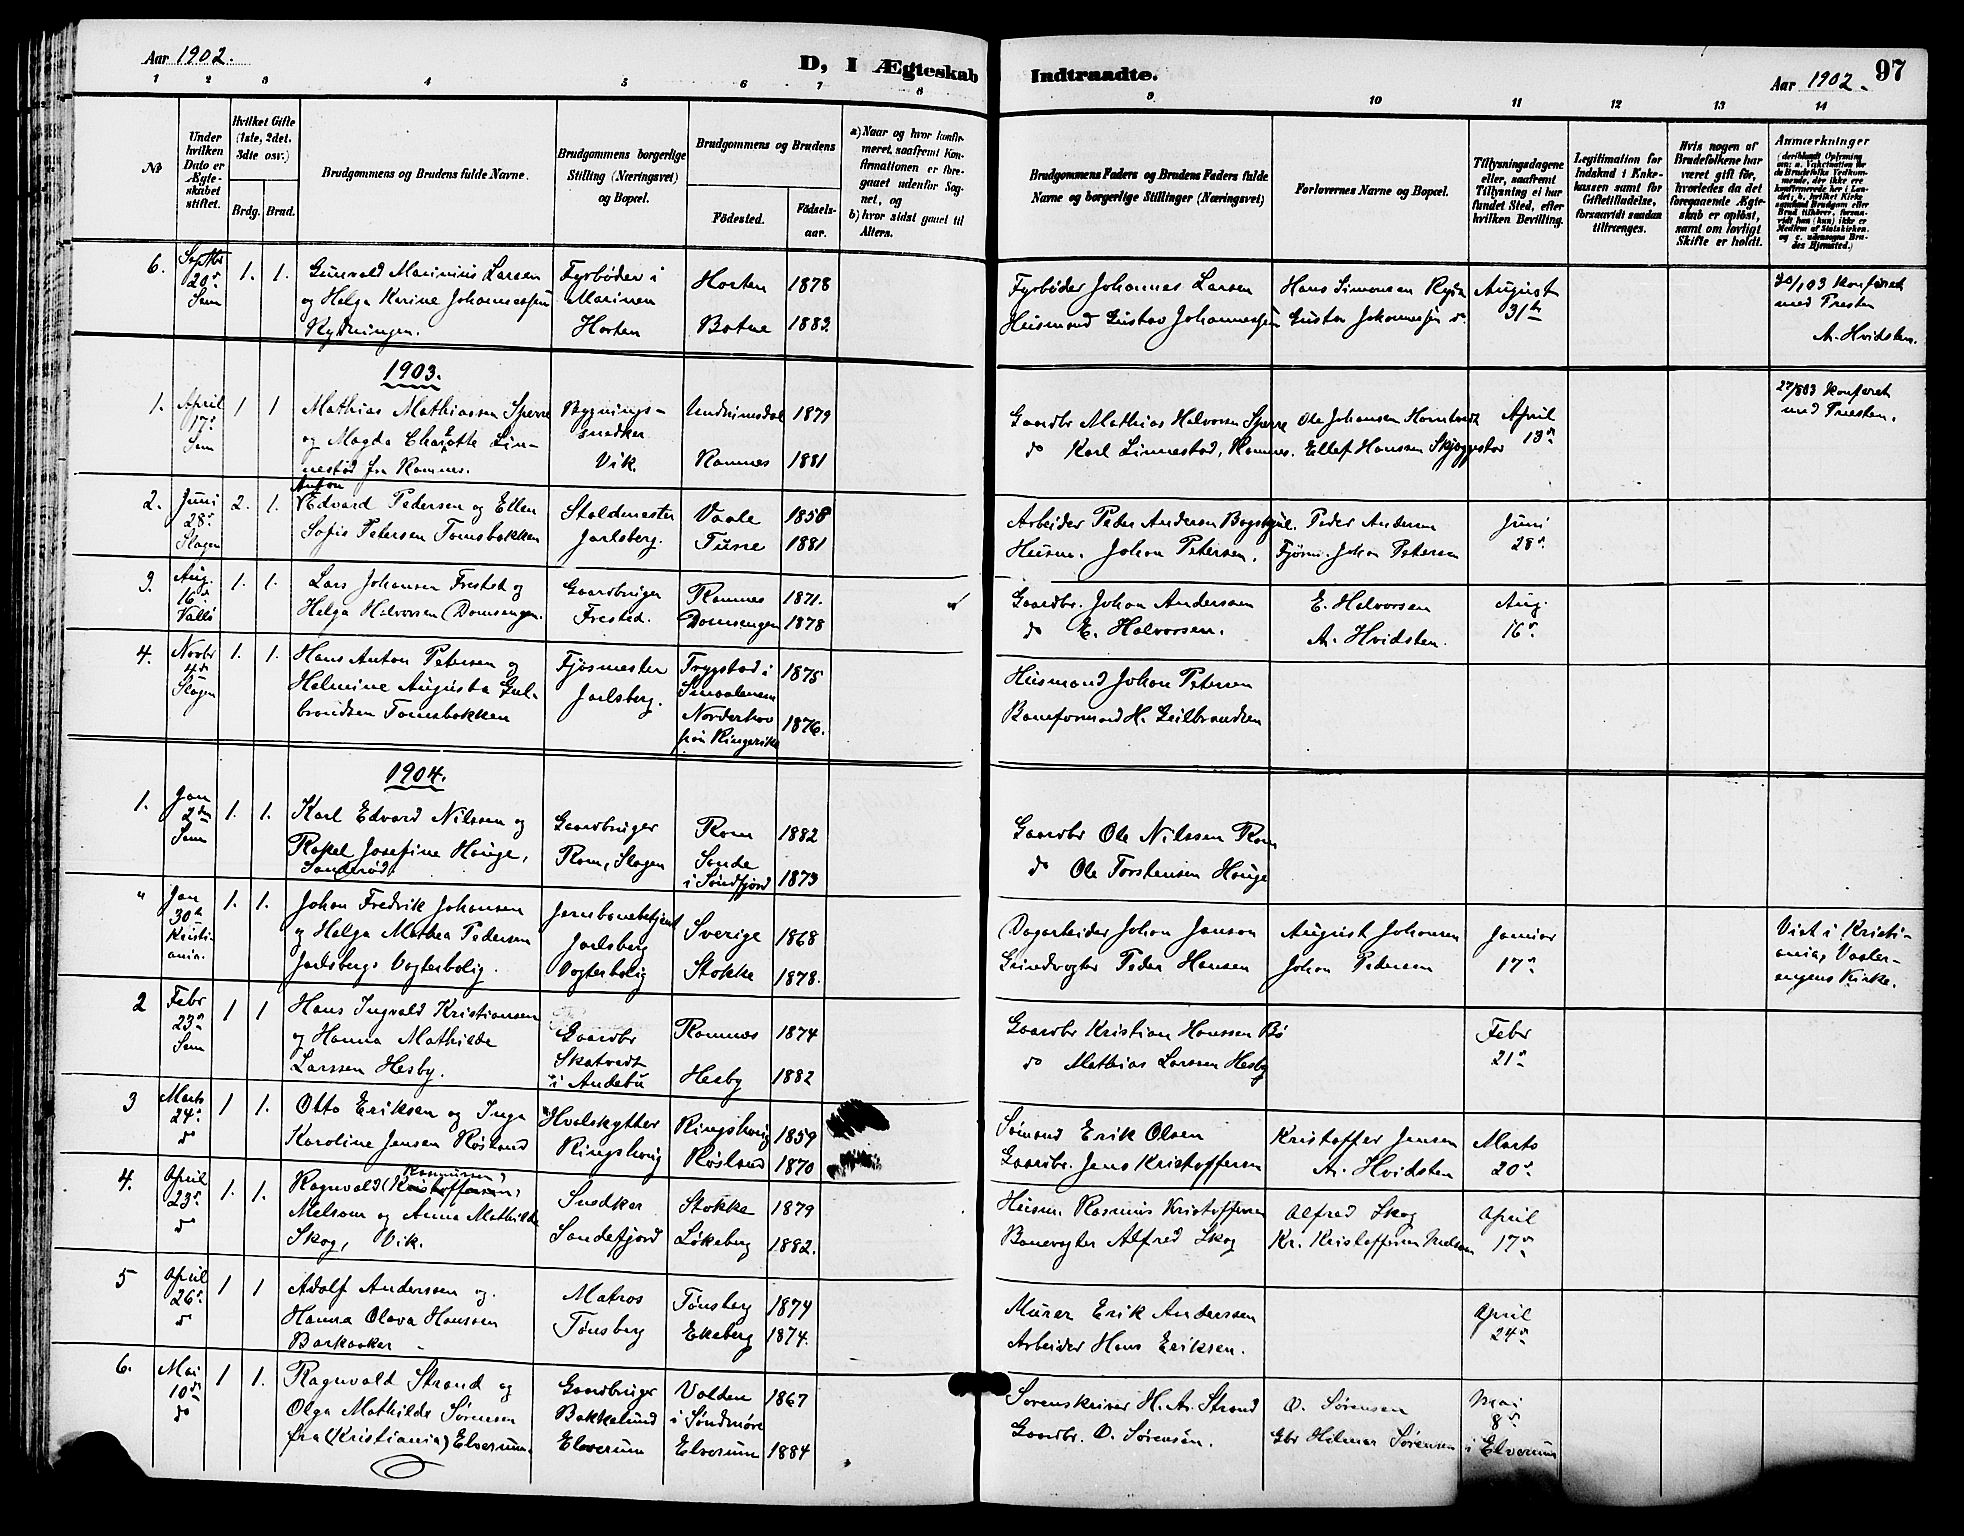 Aar 1902.
D, I Ægteskab Indtraadte.
Aar 1902.
97
1 2 3 4 5 6 7 8 9 10 11 12 13 14
№
Under hvilken Dato er Ægteskabet stiftet.
Hvilket Gifte (1ste, 2det, 3die osv.)
Brdg. Brud.
Brudgommens og Brudens fulde Navne.
Brudgommens borgerlige Stilling (Næringsvei) og Bopæl.
Brudgommens og Brudens
Fødested.
Fødselsaar.
a) Naar og hvor konfirmeret, saafremt Konfirmationen er foregaaet udenfor Sognet, og
b) hvor sidst gaaet til Alters.
Brudgommens Faders og Brudens Faders fulde Navne og borgerlige Stillinger (Næringsvei)
Forlovernes Navne og Bopæl.
Tillysningsdagene eller, saafremt Tillysning ei har fundet Sted, efter hvilken Bevilling.
Legitimation for Indskud i Enkekassen samt for Giftetilladelse, forsaavidt saadan tiltrænges.
Hvis nogen af Brudefolkene har været gift før, hvorledes da det foregaaende Ægteskab er opløst, samt om lovligt Skifte er holdt.
Anmærkninger
6. Septbr 20de Sem 1. 1.
Gunvald Marinius Larsen
og Helga Karine Johannessen
Rydningen.
Fyrbøder i
Marinen
Horten
Horten 1878
Botne 1883.
Fyrbøder Johannes Larsen
Husmand Gustav Johannessen
Hans Simonsen
Gustav Johannessen do.
August
31te
konfereret
med Presten
A. Hvidsten.
1903.
1. April 17de Sem 1 1
Mathias Mathiassen Sperre
og Magda Charlotte Lin-
nestad fra Ramnes.
Bygnings-
snedker
Vik.
1879
Ramnes 1881
Gaardbr Mathias Halvorsen Sperre
do Karl Linnestad, Ramnes.
Ole Johansen
Ellef Hanssen Skjeggestad
April
13de
27/8 03 konfereret
med Presten.
2. Juni 28de Slagen 2. 1.
Anton
Edvard Pedersen og Ellen
Sofie Petersen Tomsbakken
Staldmester
Jarlsberg.
Vaale 1858
1881
Arbeider Peder Andersen
Husm. Johan Petersen.
Peder Andersen
Johan Petersen
Juni
28de
3. Aug. 16de Vallø 1. 1.
Lars Johansen Frested og
Helga Halvorsen (Domsengen.
Gaardbruger
Frested.
Ramnes 1871.
Domsengen 1878
Gaardbr. Johan Anderssen
do E. Halvorsen.
E. Halvorsen
A. Hvidsten.
Aug.
16de
4. Novbr 4de Slagen 1. 1.
Hans Anton Petersen og
Helmine Augusta Gul-
brandsen Tomsbakken
Fjøsmester
Jarlsberg.
Trygstad i
Smaalenene 1875
Norderhov
paa Ringerike 1876.
Husmand Johan Petersen
Baneformand H. Gulbrandsen
1904.
1. Jan 2den Sem 1. 1.
Karl Edvard Nilssen og
Rakel Josefine Hauge,
Sanderød.
Gaardbruger
Rom, Slagen
Rom 1882
Sande
i Søndfjord 1873
Gaardbr Ole Nilssen Rom
do Ole Torstensen Hauge
" Jan 30te Kristi-
ania. 1. 1.
Johan Fredrik Johansen
og Helga Mathea Pedersen
Jarlsbergs Vogterbolig.
Jernbanebetjent
Jarlsberg
Vogterbolig
Sverige 1868
Stokke 1878.
Dagarbeider Johan Janson
Grindvogter Peder Hansen
August Johansen
Johan Pedersen
Januar
17de
Viet i Kristi-
ania, Vaaler-
engens Kirke.
2 Febr 23de Sem 1 1
Hans Ingvald Kristiansen
og Hanna Mathilde
Larssen Hesby.
Gaardbr
Skatvedt
i Andebu
Ramnes 1874
Hesby 1882
Gaardbr Kristian Hanssen Bø
do Mathias Larssen Hesby
Febr
21de
3 Marts 24de do 1 1.
Otto Eriksen og Inga
Karoline Jensen Røsland
Hvalskytter
Ringshoug
Ringshoug 1859
Røsland 1870
Sømand Erik Olsen
Gaardbr. Jens Kristoffersen
Kristoffer Jensen
A. Hvidsten
Marts
20de
4. April 23de do 1. 1.
Rasmussen,
Ragnvald (Kristoffersen,
Melsom og Anna Mathilde
Skog, Vik.
Snedker
Sandefjord
Stokke 1879
Løkeberg 1882.
Husm. Rasmus Kristoffersen
Banevogter Alfred Skog
Alfred Skog
Kr. Kristoffersen Melsom
April
17de
5 April 26de do 1 1
Adolf Anderssen og
Hanna Olava Hanssen
Barkaaker
Matros
Tønsberg
Tønsberg 1874
Ekeberg 1874.
Murer Erik Anderssen
Arbeider Hans Eriksen.
April
24de
6. Mai 10de do 1 1.
Ragnvald Strand og
Olga Mathilde Sørensen
fra (Kristiania) Elverum.
Gaardbruger
Bakkelund
Elverum
Volden
i Søndmøre 1867
Elverum 1884
Sorenskriver H. A. Strand
Gaardbr. O. Sørensen.
O. Sørensen
Gbr Hilmar Sørensen
Mai
8de
i Elverum